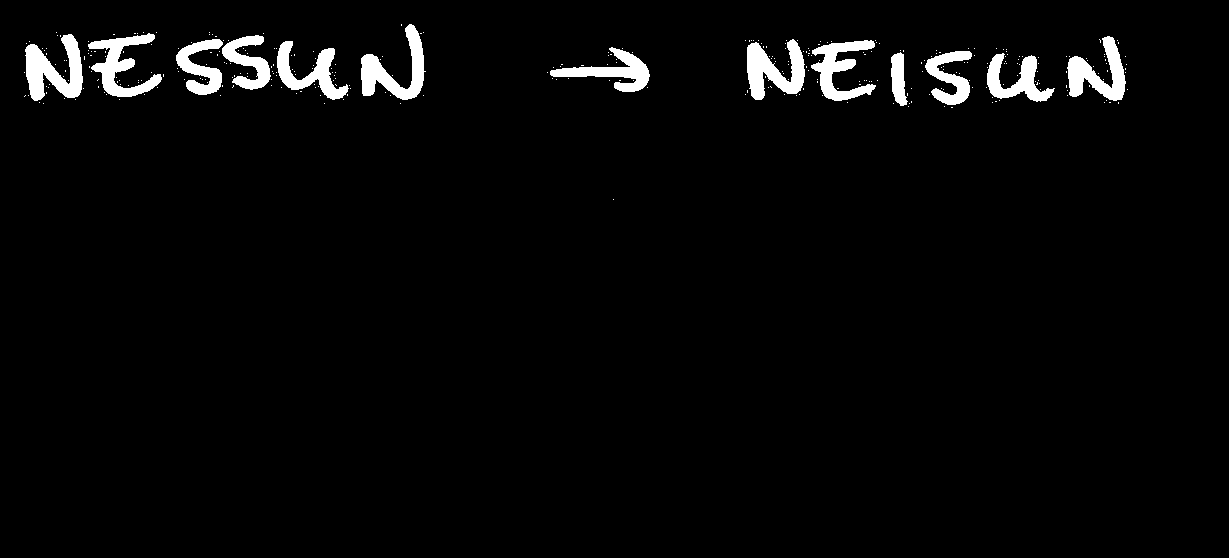 NESSUN → NEISUN